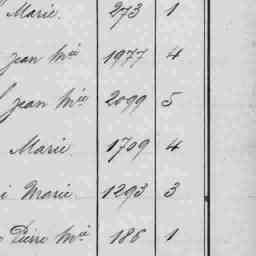 Marie. 273 1
Jean Mie 1977 4
Jean Mie 2099 5
Marie. 1709 4
i Marie. 1293 3
Pierre Mie 186 1